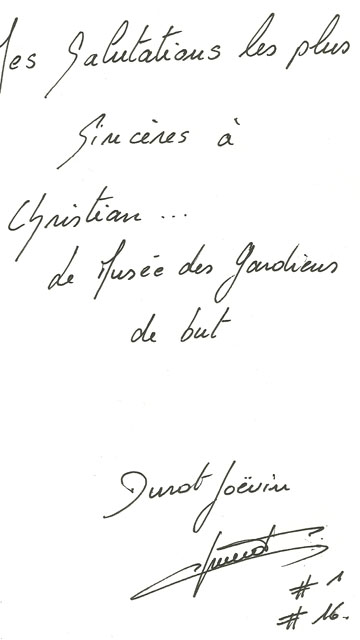 Mes Salutations les plus
Sincères à
Christian ...
de Musée des Gardiens
de but
Durot Joëvin
# 1
# 16.